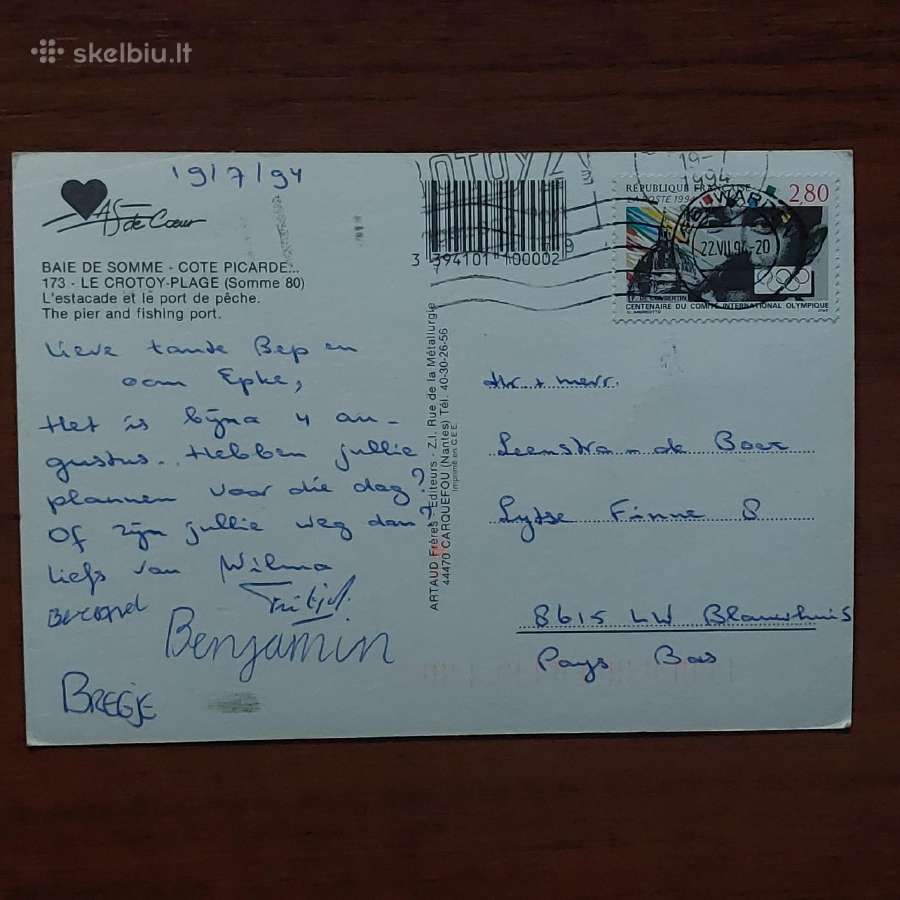 skelbiu.lt
19/7/94
As de Cœur
BAIE DE SOMME - COTE PICARDE...
173 - LE CROTOY-PLAGE (Somme 80)
L'estacade et le port de pêche.
The pier and fishing port.
Lieve tante Bep en
oom Epke,
Het is bijna 4 au-
gustus.. Hebben jullie
plannen voor die dag?
Of zijn jullie weg dan?
Liefs van Wilma
Berend
Benjamin
BREGJE
3 394101 100002
ARTAUD Frères - Editeurs - Z.I. Rue de la Métallurgie
44470 CARQUEFOU (Nantes) Tél. 40-30-26-56
Imprimé en C.E.E.
19-
1994
22.VII.94-20
RÉPUBLIQUE FRANÇAISE 2,80
LA POSTE 1994
P. DE COUBERTIN
CENTENAIRE DU COMITÉ INTERNATIONAL OLYMPIQUE
Hr. + mevr.
Leenstra - de Boer
Lytse Finne 8
8615 LW Blauwhuis
Pays Bas